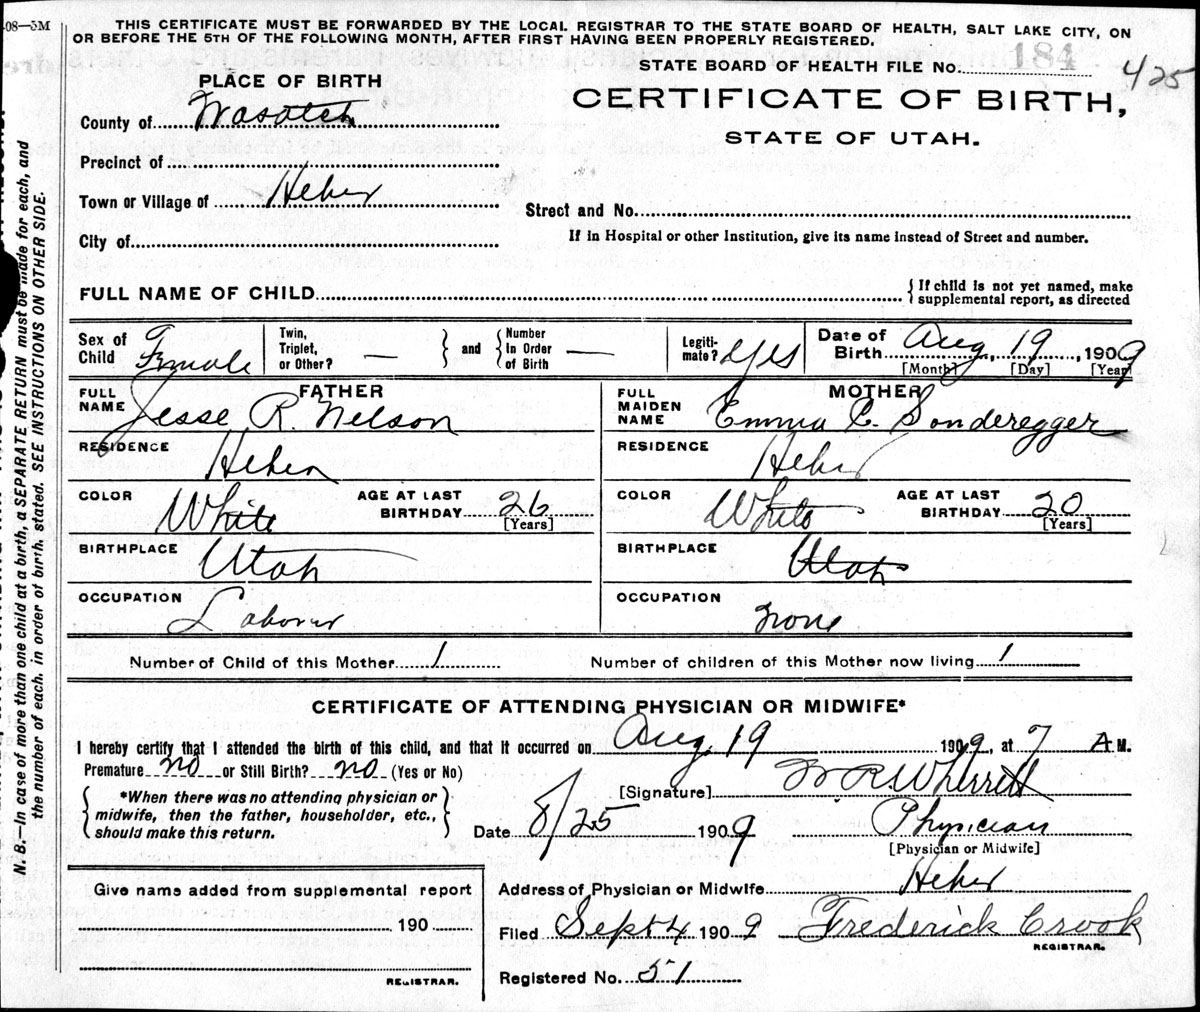 -08—3M
THIS CERTIFICATE MUST BE FORWARDED BY THE LOCAL REGISTRAR TO THE STATE BOARD OF HEALTH, SALT LAKE CITY, ON
OR BEFORE THE 5TH OF THE FOLLOWING MONTH, AFTER FIRST HAVING BEEN PROPERLY REGISTERED.
STATE BOARD OF HEALTH FILE No. 184 425
PLACE OF BIRTH
CERTIFICATE OF BIRTH,
STATE OF UTAH.
County of Wasatch
Precinct of
Town or Village of Heber
Street and No.
City of
If in Hospital or other Institution, give its name instead of Street and number.
FULL NAME OF CHILD { If child is not yet named, make supplemental report, as directed
Sex of Child Female Twin, Triplet, or Other? — } and { Number In Order of Birth — Legiti-mate? Yes Date of Birth Aug. 19, 1909
[Month] [Day] [Year]
FATHER MOTHER
FULL NAME Jesse R. Nelson FULL MAIDEN NAME Emma C. Sonderegger
RESIDENCE Heber RESIDENCE Heber
COLOR White AGE AT LAST BIRTHDAY 26 [Years] COLOR White AGE AT LAST BIRTHDAY 20 [Years]
BIRTHPLACE Utah BIRTHPLACE Utah
OCCUPATION Laborer OCCUPATION None
Number of Child of this Mother 1 Number of children of this Mother now living 1
CERTIFICATE OF ATTENDING PHYSICIAN OR MIDWIFE*
I hereby certify that I attended the birth of this child, and that it occurred on Aug. 19 1909, at 7 A M.
Premature no or Still Birth? no (Yes or No)
[Signature] W R Wherritt
{ *When there was no attending physician or midwife, then the father, householder, etc., should make this return. }
Date 8/25 1909 Physician
[Physician or Midwife]
Give name added from supplemental report
190
REGISTRAR.
Address of Physician or Midwife Heber
Filed Sept 4 1909 Frederick Crook
REGISTRAR.
Registered No. 51
N. B.—In case of more than one child at a birth, a SEPARATE RETURN must be made for each, and
the number of each, in order of birth, stated. SEE INSTRUCTIONS ON OTHER SIDE.